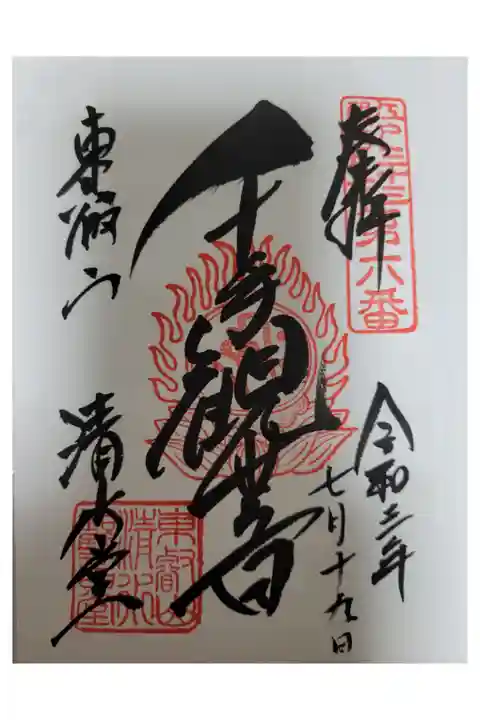 奉拝
第六番
令和三年
七月十九日
千手観世音
東叡山
清水堂
東叡山
清水
観音堂